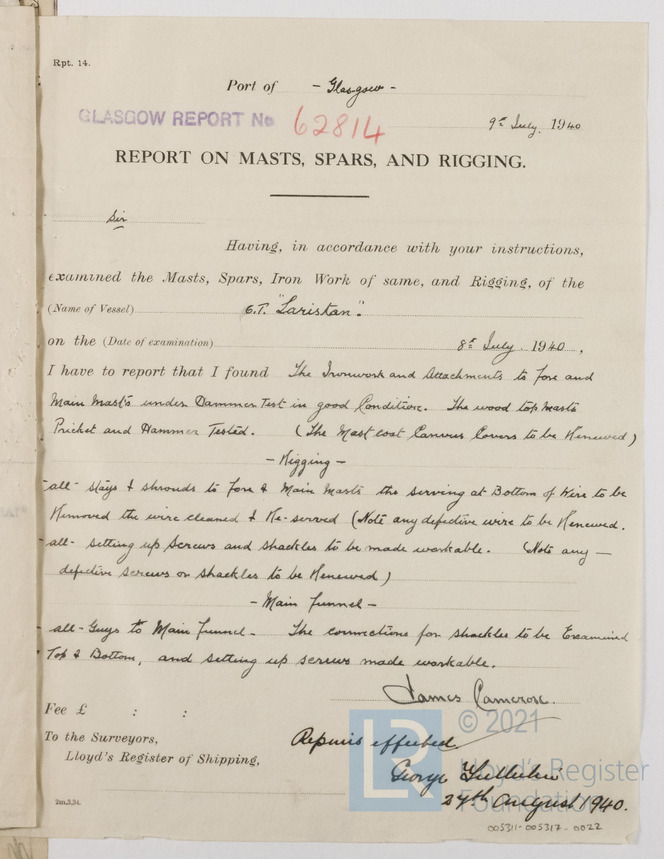 Rpt. 14.
Port of - Glasgow -
GLASGOW REPORT No 62814
9th July. 1940
REPORT ON MASTS, SPARS, AND RIGGING.
Sir
Having, in accordance with your instructions,
examined the Masts, Spars, Iron Work of same, and Rigging, of the
(Name of Vessel) "Laristan".
on the (Date of examination) 8th July. 1940,
I have to report that I found The Ironwork and Attachments to fore and
Main Masts under Hammer Test in good Condition. The wood top Masts
Pricket and Hammer Tested. (The Mast coat Canvus Covers to be Renewed)
- Rigging -
-all- stays & shrouds to fore & Main Masts the serving at Bottom of Wire to be
Removed the wire cleaned & Re-served (Note any defective wire to be Renewed.
-all- setting up screws and shackles to be made workable. (Note any -
defective screws or shackles to be Renewed)
- Main funnel -
- all - Guys to Main funnel - The connections for shackles to be Examined
Top & Bottom, and setting up screws made workable.
James Cameron.
Fee £ : :
To the Surveyors,
Lloyd's Register of Shipping,
Repairs effected
George
24th August 1940.
2m,3,34.
LR
© 2021
Lloyd's Register
Foundation
005311-005317-0022